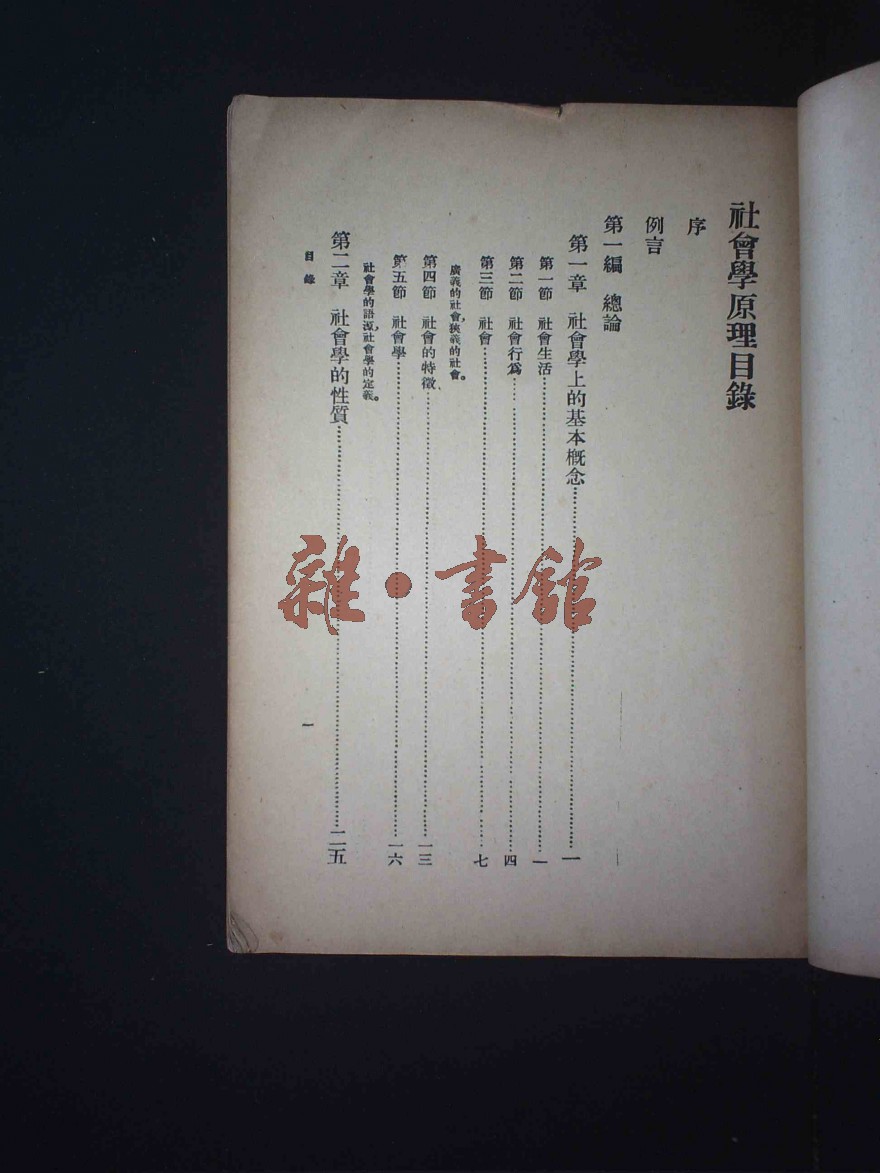 社會學原理目錄
序
例言
第一編　總論
第一章　社會學上的基本概念……一
第一節　社會生活……一
第二節　社會行爲……四
第三節　社會……七
廣義的社會，狹義的社會。
第四節　社會的特徵……一三
第五節　社會學……一六
社會學的語源，社會學的定義。
第二章　社會學的性質……二五
目錄
一
雜·書館